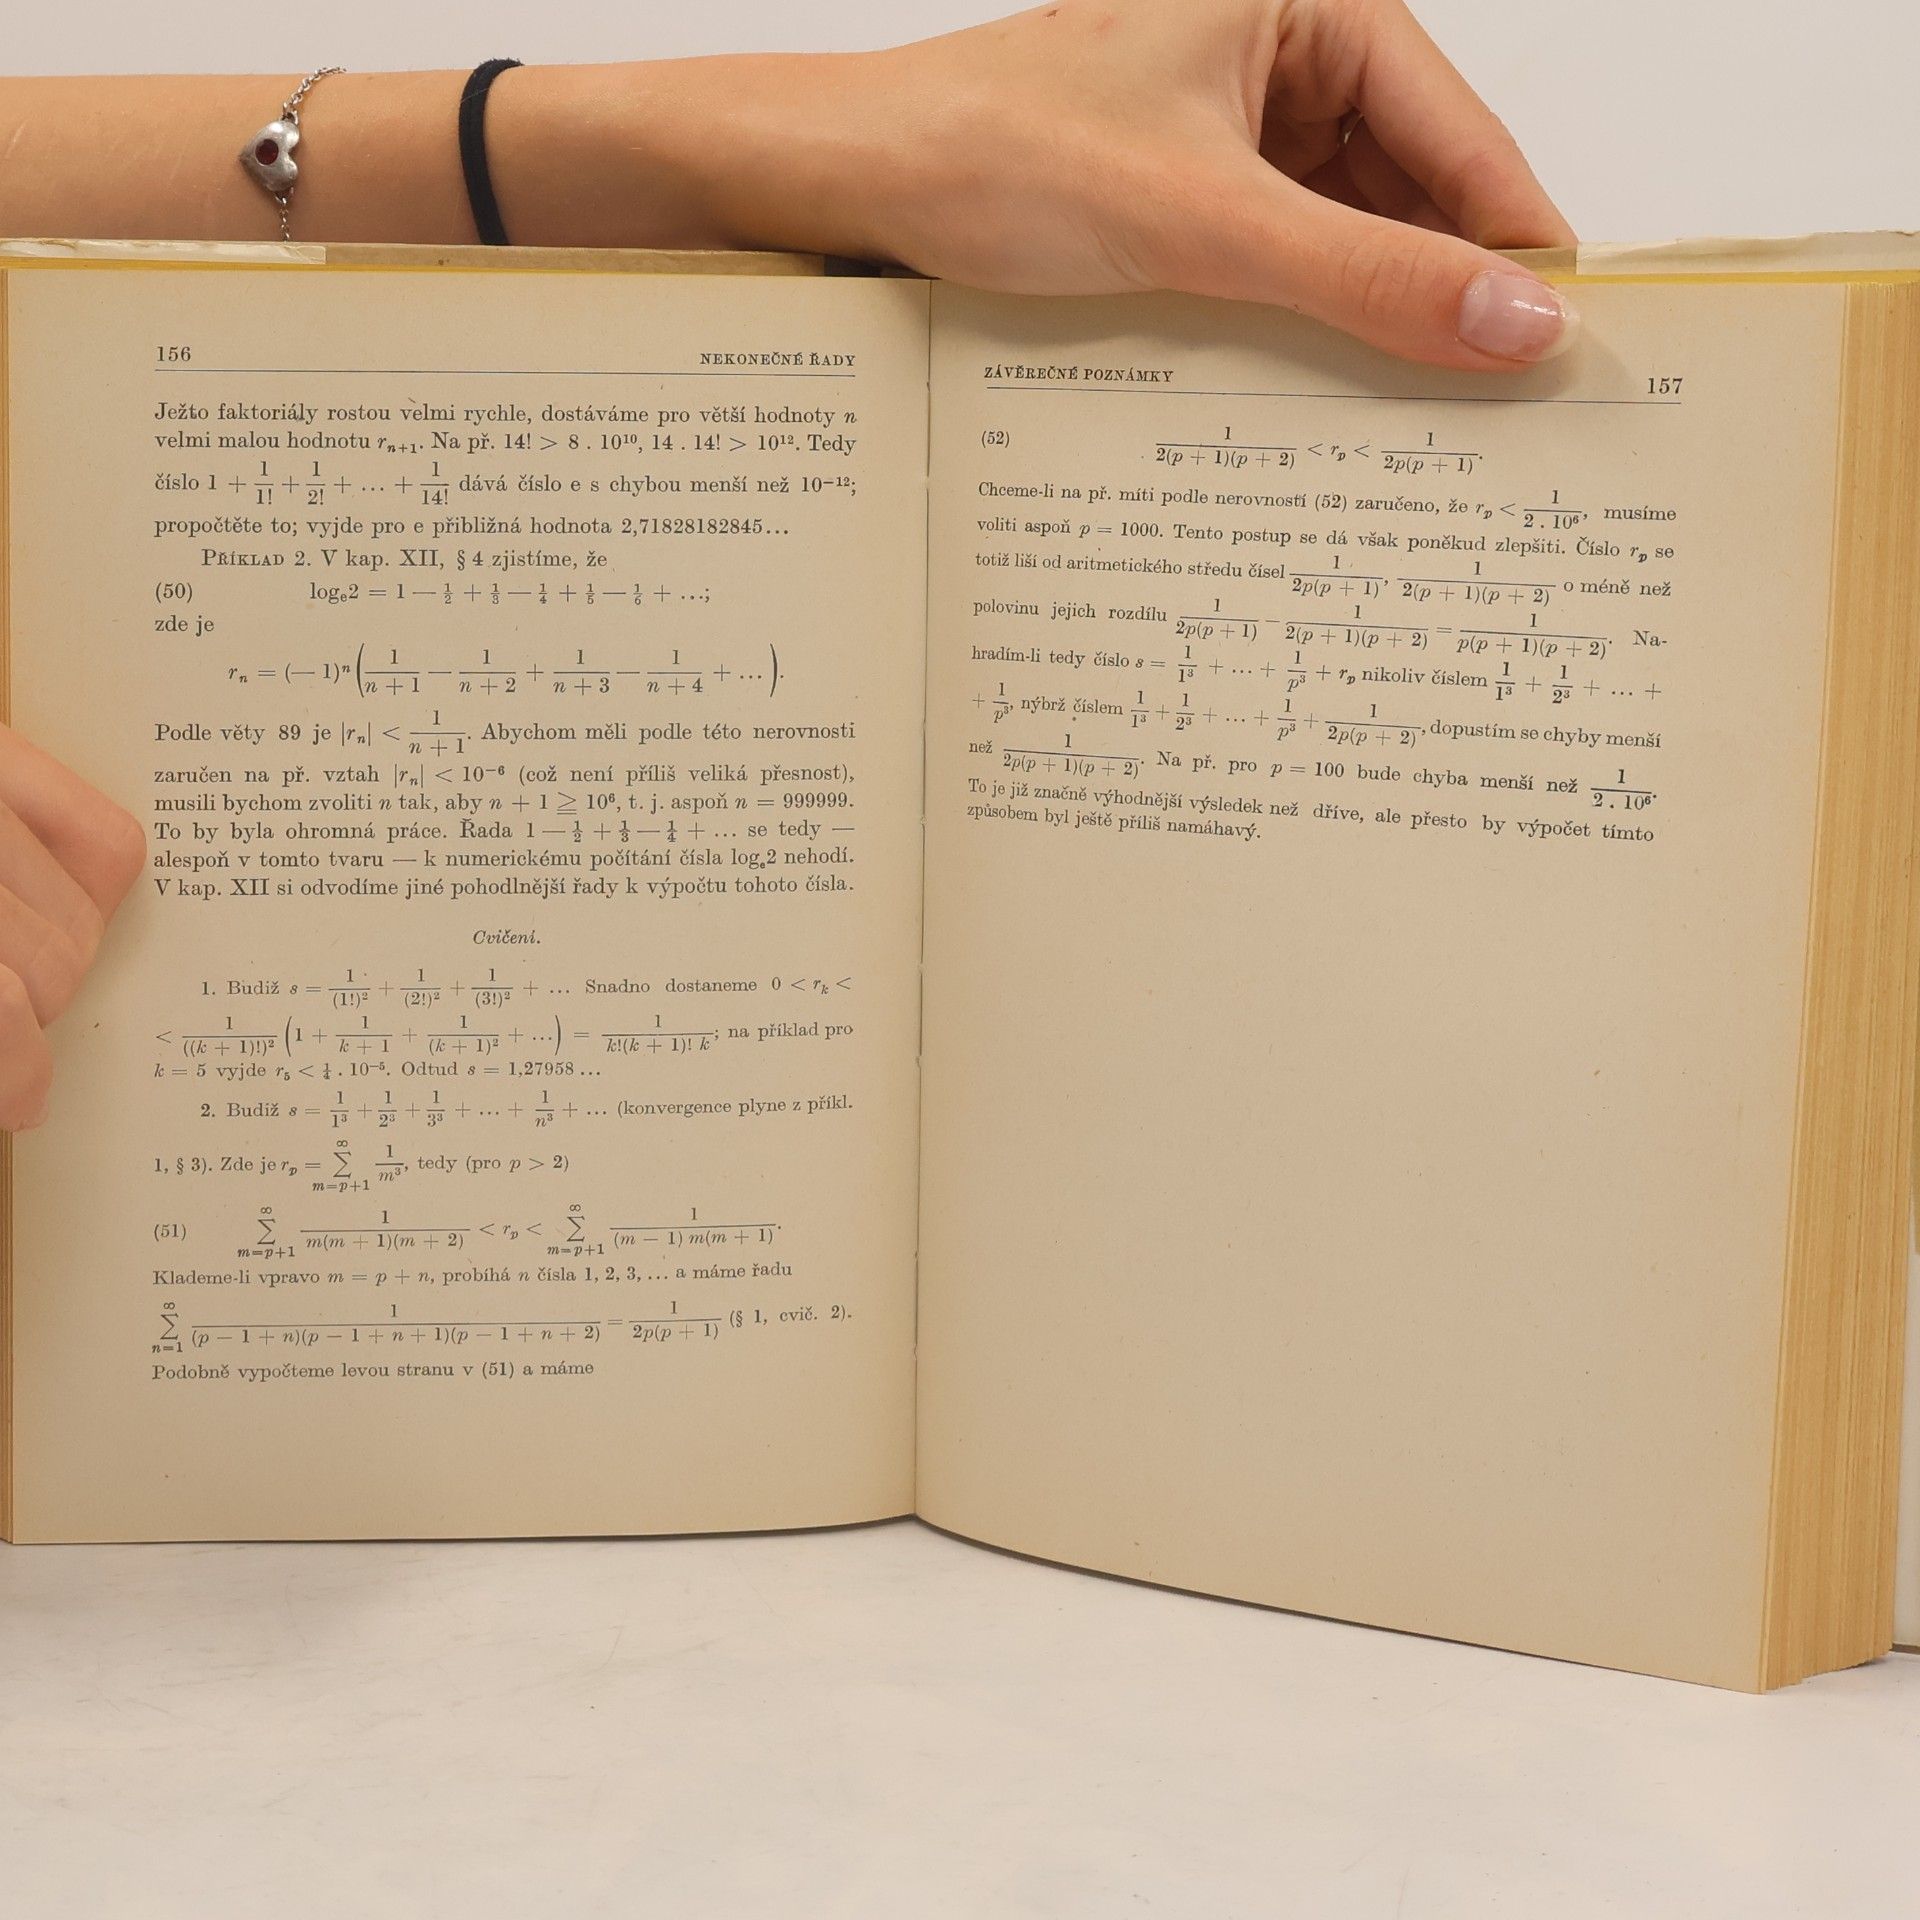 156 NEKONEČNÉ ŘADY
Ježto faktoriály rostou velmi rychle, dostáváme pro větší hodnoty n
velmi malou hodnotu rₙ₊₁. Na př. 14! > 8 . 10¹⁰, 14 . 14! > 10¹². Tedy
číslo 1 + 1/1! + 1/2! + ... + 1/14! dává číslo e s chybou menší než 10⁻¹²;
propočtěte to; vyjde pro e přibližná hodnota 2,71828182845...
PŘÍKLAD 2. V kap. XII, § 4 zjistíme, že
(50) logₑ2 = 1 — 1/2 + 1/3 — 1/4 + 1/5 — 1/6 + ...;
zde je
rₙ = (— 1)ⁿ (1/(n + 1) — 1/(n + 2) + 1/(n + 3) — 1/(n + 4) + ...).
Podle věty 89 je |rₙ| < 1/(n + 1). Abychom měli podle této nerovnosti
zaručen na př. vztah |rₙ| < 10⁻⁶ (což není příliš veliká přesnost),
musili bychom zvoliti n tak, aby n + 1 ≧ 10⁶, t. j. aspoň n = 999999.
To by byla ohromná práce. Řada 1 — 1/2 + 1/3 — 1/4 + ... se tedy —
alespoň v tomto tvaru — k numerickému počítání čísla logₑ2 nehodí.
V kap. XII si odvodíme jiné pohodlnější řady k výpočtu tohoto čísla.
Cvičení.
1. Budiž s = 1/(1!)² + 1/(2!)² + 1/(3!)² + ... Snadno dostaneme 0 < rₖ <
< 1/((k + 1)!)² (1 + 1/(k + 1) + 1/(k + 1)² + ...) = 1/(k!(k + 1)! k); na příklad pro
k = 5 vyjde r₅ < 1/4 . 10⁻⁵. Odtud s = 1,27958...
2. Budiž s = 1/1³ + 1/2³ + 1/3³ + ... + 1/n³ + ... (konvergence plyne z příkl.
1, § 3). Zde je rₚ = ∑_{m=p+1}^{∞} 1/m³, tedy (pro p > 2)
(51) ∑_{m=p+1}^{∞} 1/(m(m + 1)(m + 2)) < rₚ < ∑_{m=p+1}^{∞} 1/((m — 1) m(m + 1)).
Klademe-li vpravo m = p + n, probíhá n čísla 1, 2, 3, ... a máme řadu
∑_{n=1}^{∞} 1/((p — 1 + n)(p — 1 + n + 1)(p — 1 + n + 2)) = 1/(2p(p + 1)) (§ 1, cvič. 2).
Podobně vypočteme levou stranu v (51) a máme
ZÁVĚREČNÉ POZNÁMKY 157
(52) 1/(2(p + 1)(p + 2)) < rₚ < 1/(2p(p + 1)).
Chceme-li na př. míti podle nerovností (52) zaručeno, že rₚ < 1/(2 . 10⁶), musíme
voliti aspoň p = 1000. Tento postup se dá však poněkud zlepšiti. Číslo rₚ se
totiž liší od aritmetického středu čísel 1/(2p(p + 1)), 1/(2(p + 1)(p + 2)) o méně než
polovinu jejich rozdílu 1/(2p(p + 1)) — 1/(2(p + 1)(p + 2)) = 1/(p(p + 1)(p + 2)). Na-
hradím-li tedy číslo s = 1/1³ + ... + 1/p³ + rₚ nikoliv číslem 1/1³ + 1/2³ + ... +
+ 1/p³, nýbrž číslem 1/1³ + 1/2³ + ... + 1/p³ + 1/(2p(p + 2)), dopustím se chyby menší
než 1/(2p(p + 1)(p + 2)). Na př. pro p = 100 bude chyba menší než 1/(2 . 10⁶).
To je již značně výhodnější výsledek než dříve, ale přesto by výpočet tímto
způsobem byl ještě příliš namáhavý.